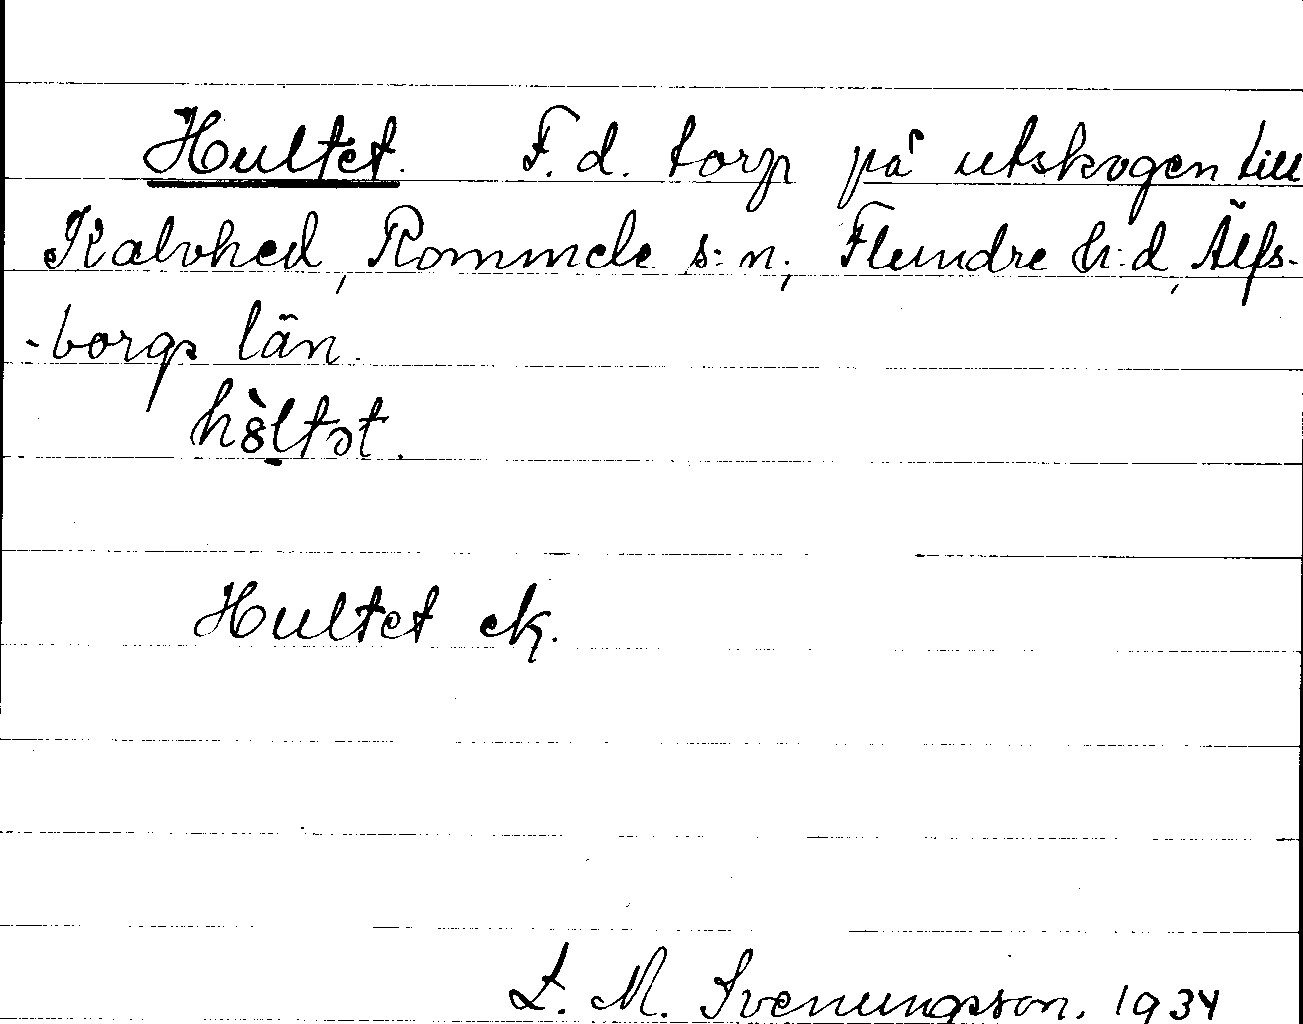 Hultet. F. d. torp på utskogen till
Kalvhed, Rommele s:n, Flundre h:d, Älfs-
-borgs län.
hòltət.
Hultet ek.
L. M. Svenungsson. 1934